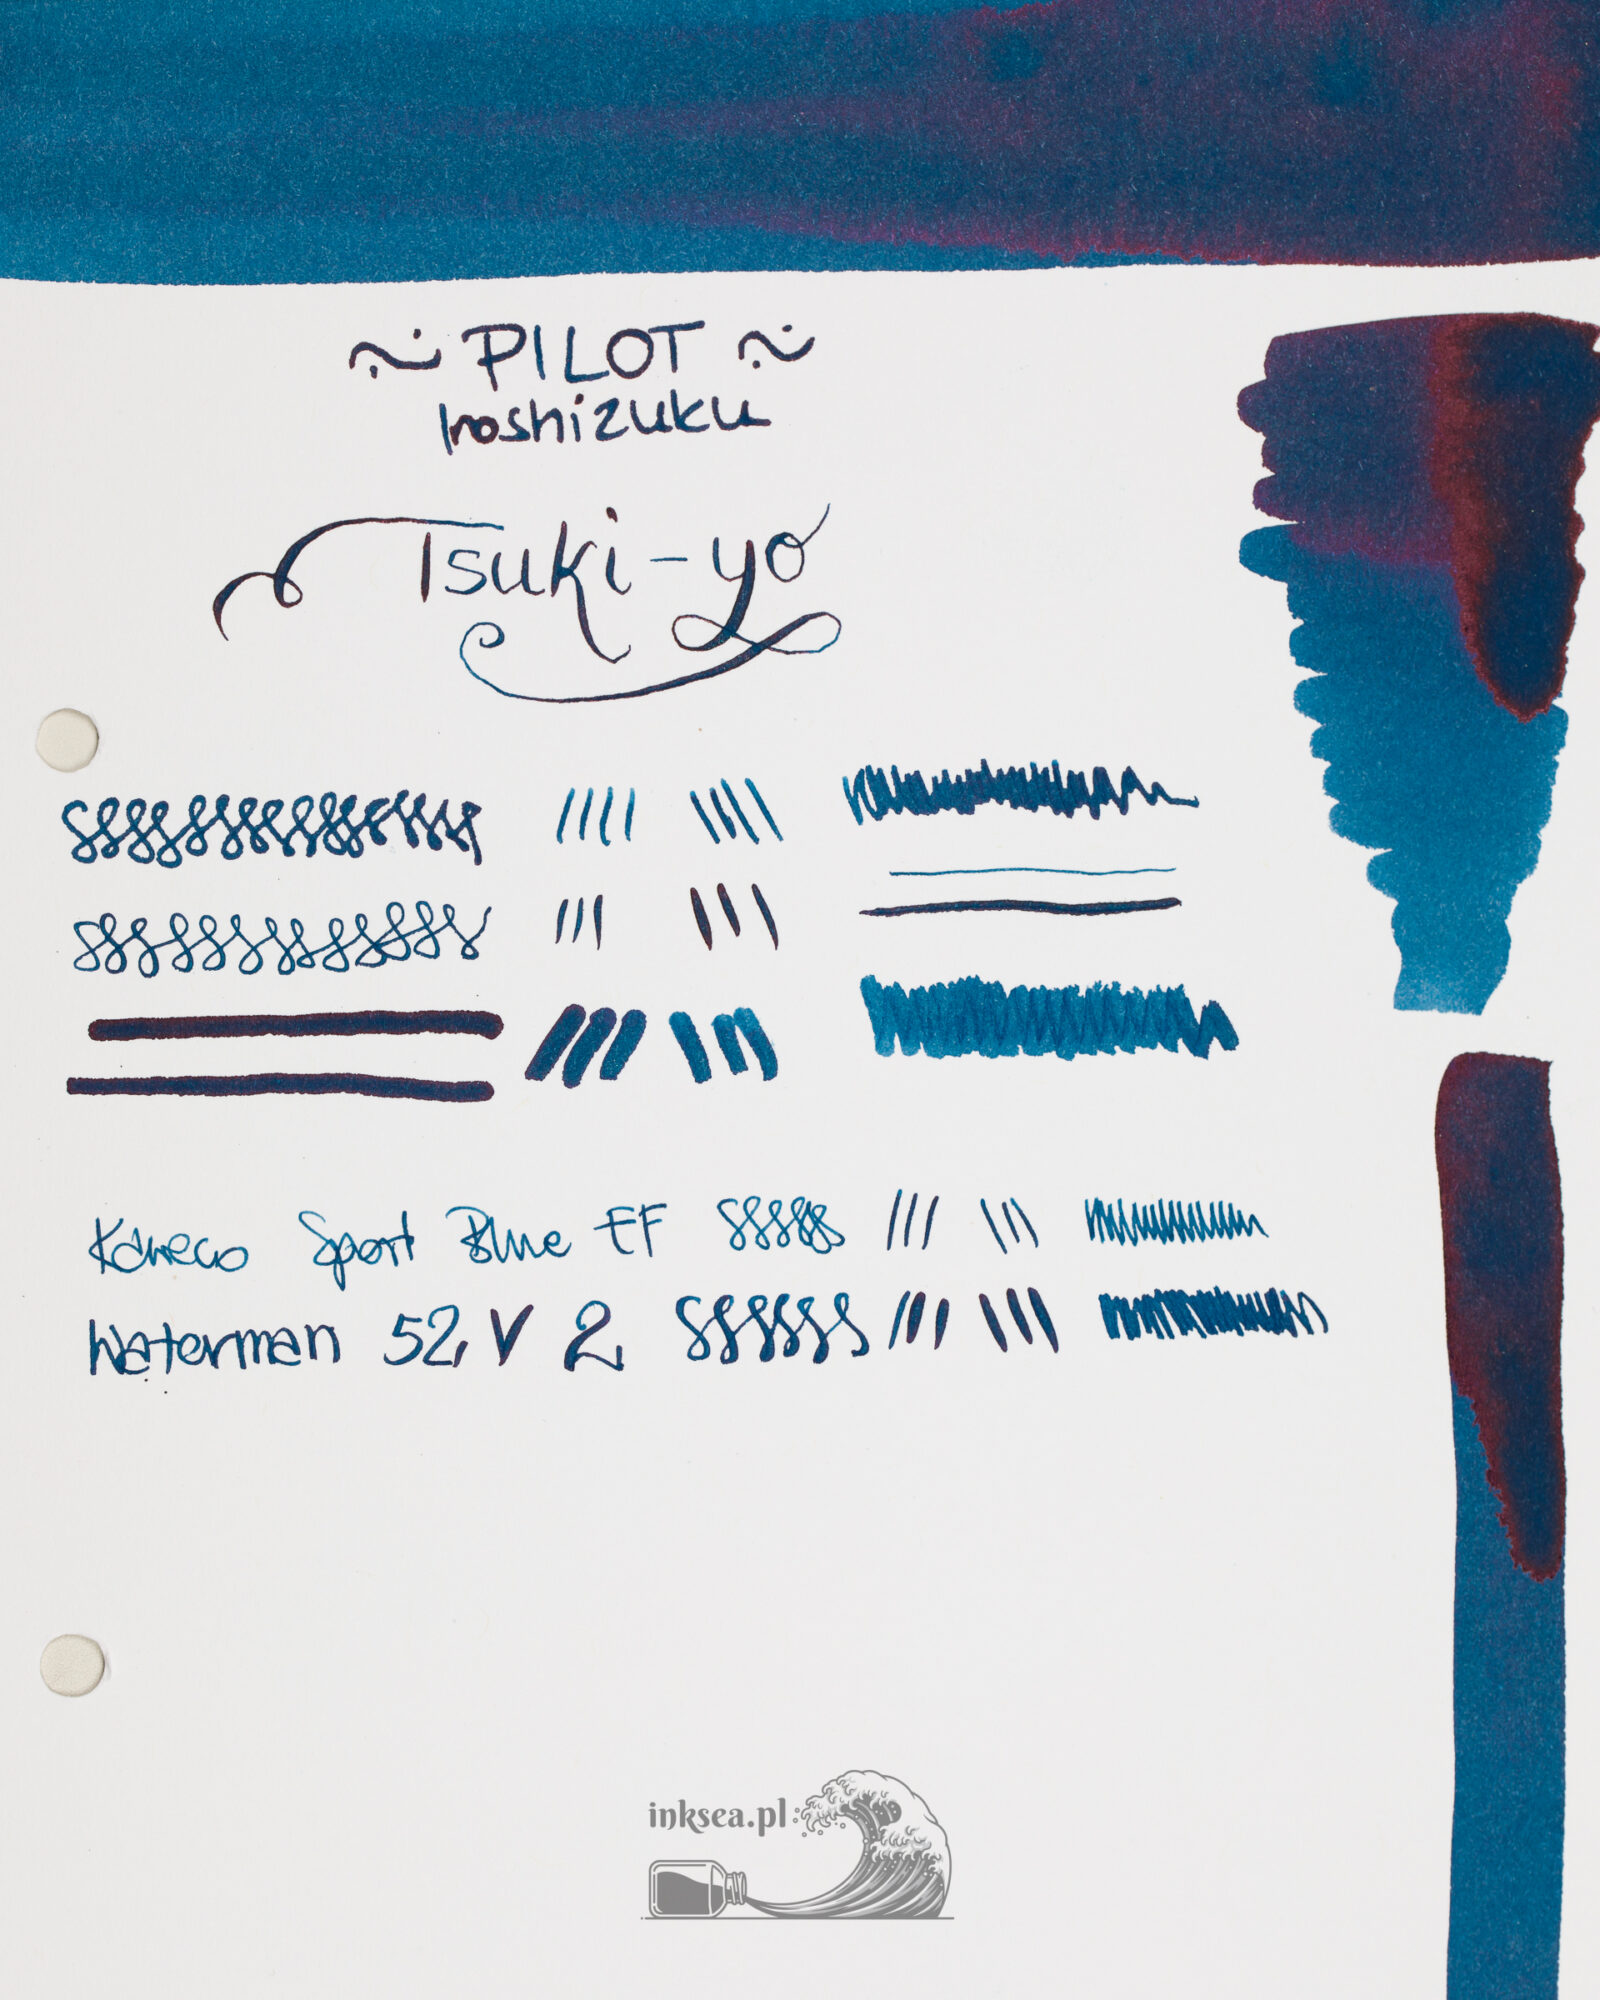 ~ PILOT ~
Iroshizuku
Tsuki-yo
Kaweco Sport Blue EF
Waterman 52 V 2
inksea.pl